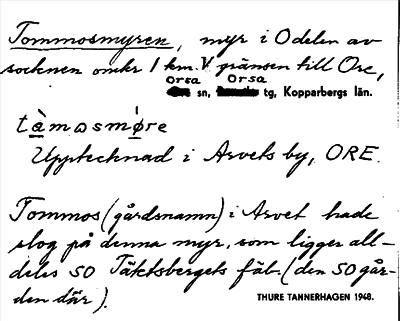 Tommosmyren, myr i O delen av
socknen omkr 1 km. V gränsen till Ore,
Orsa Orsa
sn, tg, Kopparbergs län.
tàmɷsmø̀re
Upptecknad i Arvets by, ORE.
Tommos (gårdsnamn) i Arvet hade
slog på denna myr, som ligger all-
deles SO Täktsbergets fäb. (den SO går-
den där).
THURE TANNERHAGEN 1948.